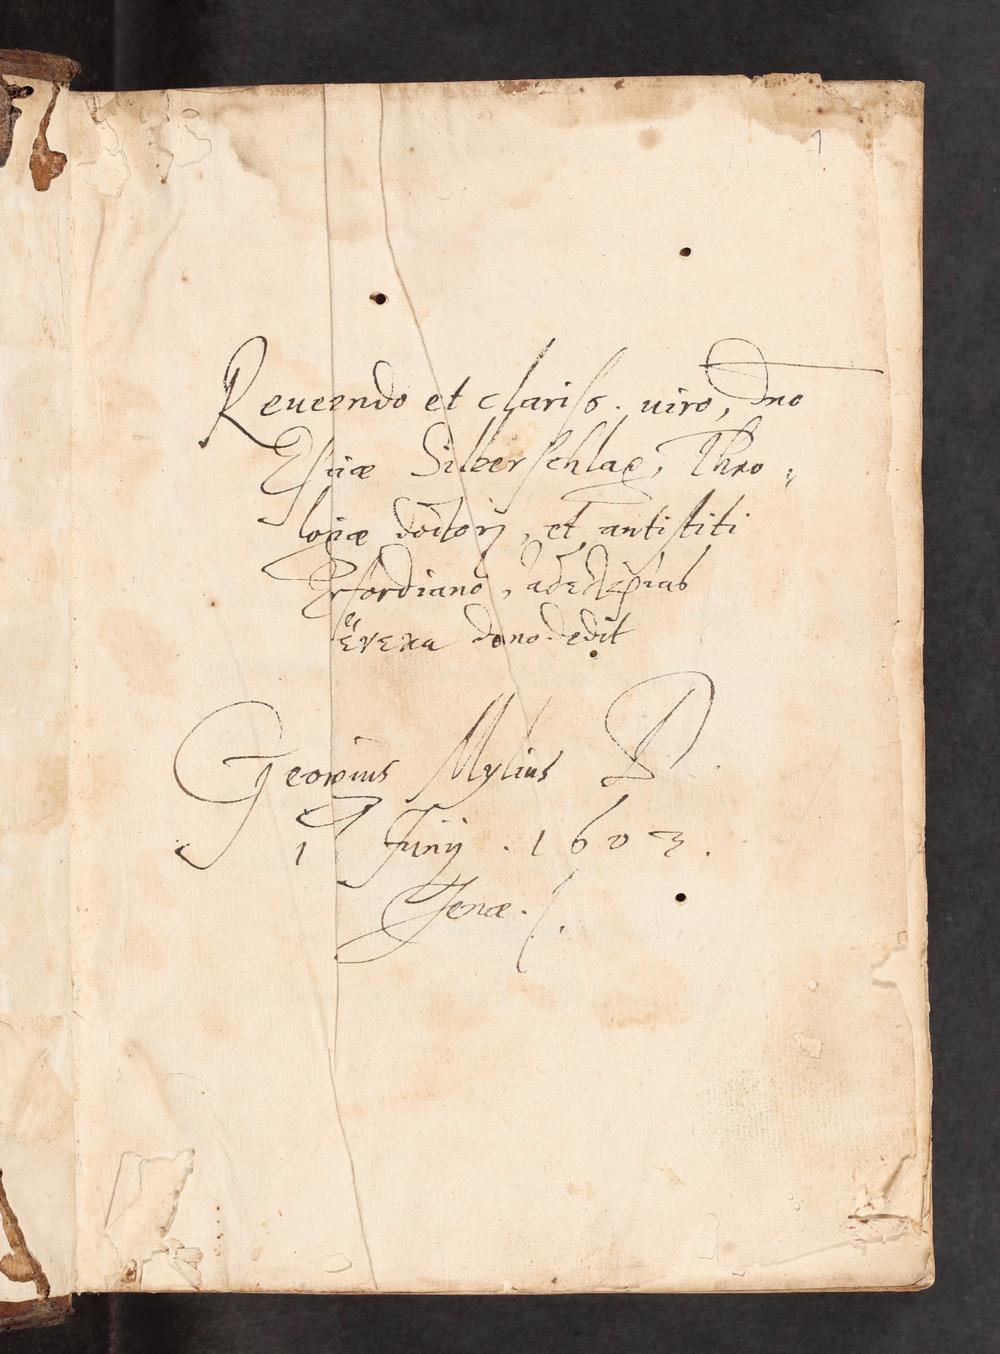 1
Reuerendo et clariss. viro, Dno
Esaiæ Silberschlag, Theo,
logiæ doctori, et antistiti
Erfordiano,
ἕνεκα dono dedit
Georgius Mylius D.
1 Junij . 1603.
Jenæ.